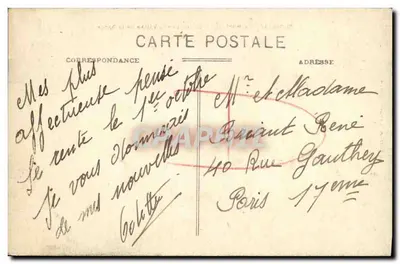 CARTE POSTALE
CORRESPONDANCE
ADRESSE
Mes plus
affectueuse pensé
Je rentre le 1er octobre
Je vous donnerais
de mes nouvelles
Colette
Mr et Madame
René
40 Rue Gauthey
Paris 17eme